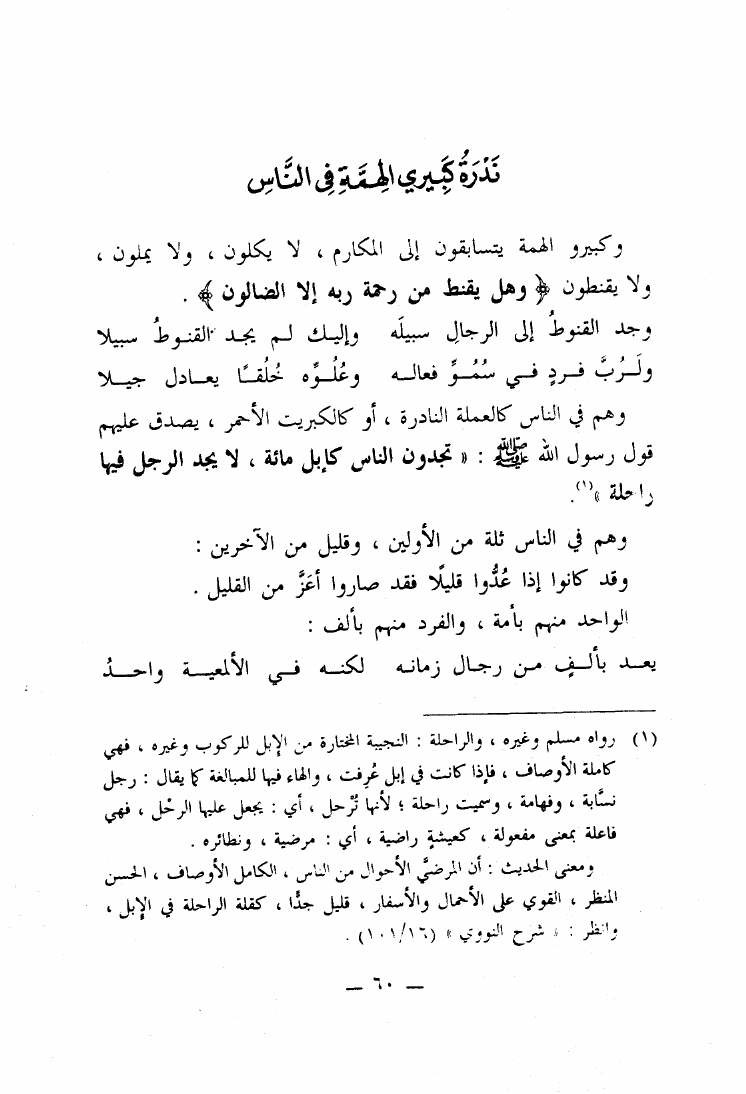 نَدْرَةُ كَبِيرِي الهِمَّةِ فِي النَّاسِ
وكبيرو الهمة يتسابقون إلى المكارم ، لا يكلون ، ولا يملون ،
ولا يقنطون ﴿ وهل يقنط من رحمة ربه إلا الضالون ﴾ .
وجد القنوطُ إلى الرجالِ سبيلَه وإليك لم يجد القنوطُ سبيلا
ولَرُبَّ فردٍ في سُمُوِّ فعاله وعُلُوِّه خُلقًا يعادل جيلا
وهم في الناس كالعملة النادرة ، أو كالكبريت الأحمر ، يصدق عليهم
قول رسول الله ﷺ : « تجدون الناس كإبل مائة ، لا يجد الرجل فيها
راحلة »(١).
وهم في الناس ثلة من الأولين ، وقليل من الآخرين :
وقد كانوا إذا عُدُّوا قليلًا فقد صاروا أعَزَّ من القليل .
الواحد منهم بأمة ، والفرد منهم بألف :
يعد بألفٍ من رجال زمانه لكنه في الألمعية واحدُ
(١) رواه مسلم وغيره ، والراحلة : النجيبة المختارة من الإبل للركوب وغيره ، فهي
كاملة الأوصاف ، فإذا كانت في إبل عُرِفت ، والهاء فيها للمبالغة كما يقال : رجل
نسَّابة ، وفهامة ، وسميت راحلة ؛ لأنها تُرْحل ، أي : يجعل عليها الرحْل ، فهي
فاعلة بمعنى مفعولة ، كعيشةٍ راضية ، أي : مرضية ، ونظائره .
ومعنى الحديث : أن المرضيَّ الأحوال من الناس ، الكامل الأوصاف ، الحسن
المنظر ، القوي على الأحمال والأسفار ، قليل جدًّا ، كقلة الراحلة في الإبل ،
وانظر : « شرح النووي » (١٠١/١٦) .
— ٦٠ —